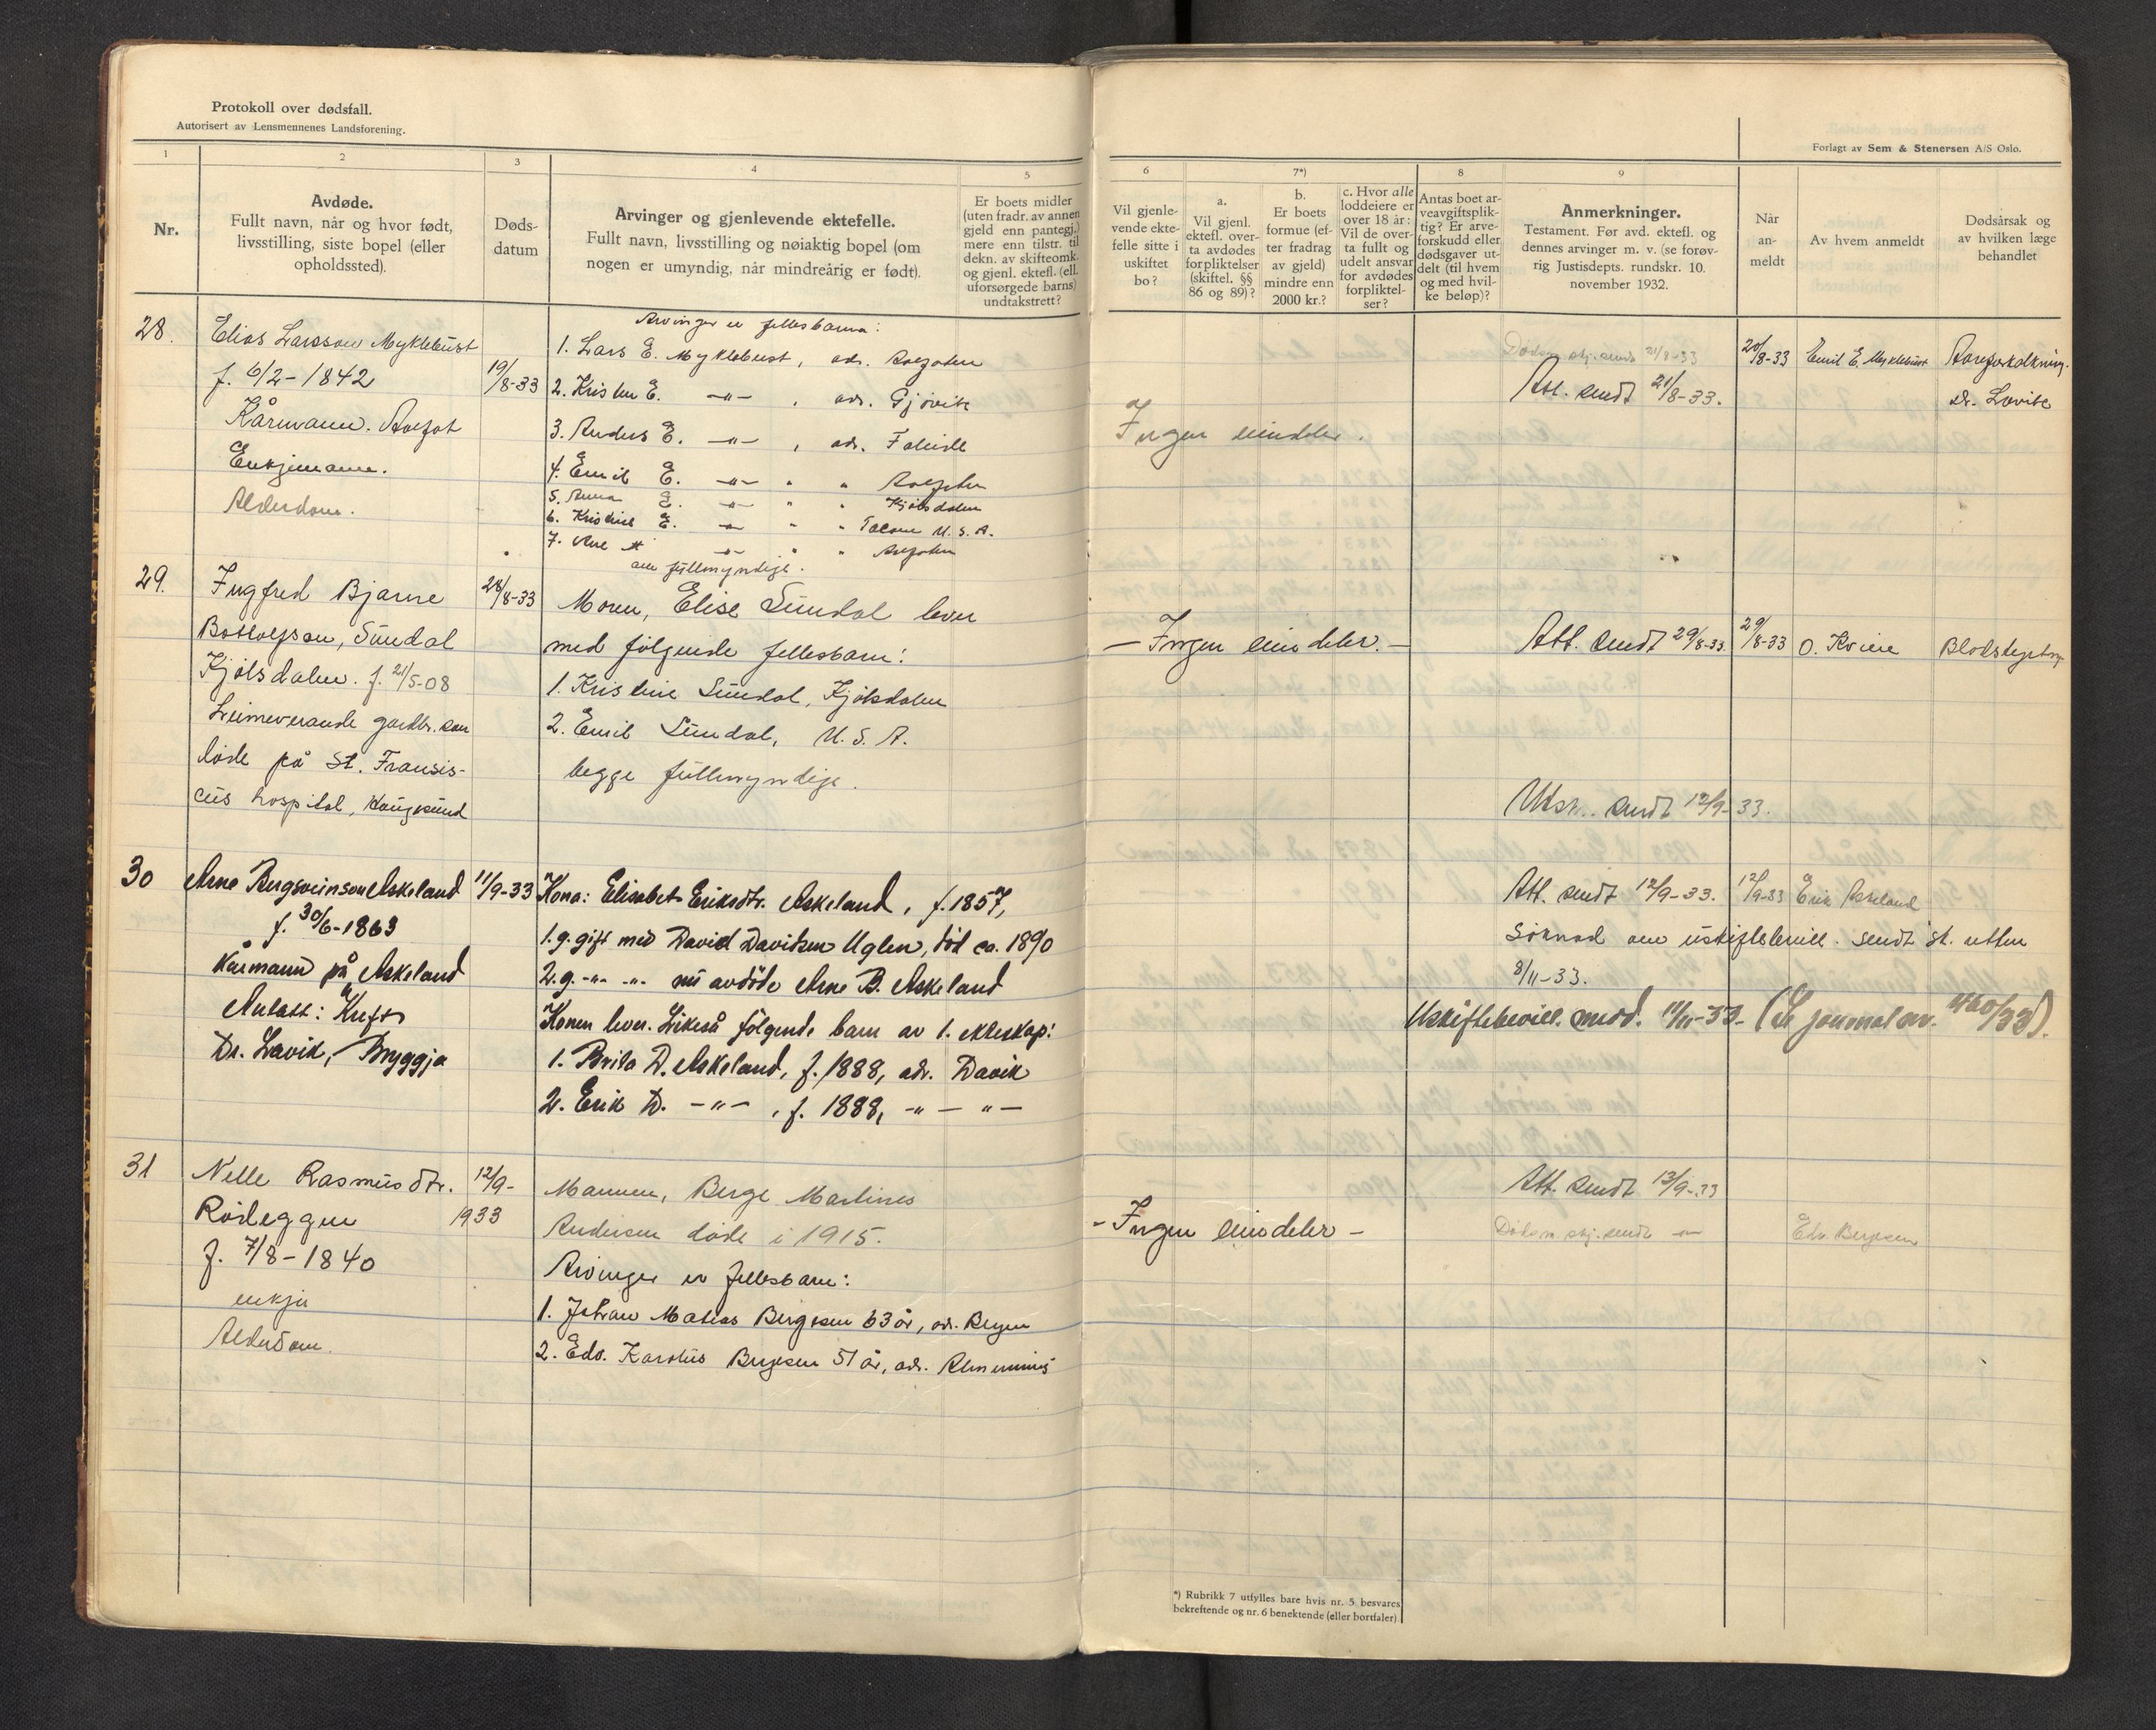 Protokoll over dødsfall.
Autorisert av Lensmennenes Landsforening.
1
2
3
4
5
Nr.
Avdøde.
Fullt navn, når og hvor født,
livsstilling, siste bopel (eller
opholdssted).
Døds-
datum
Arvinger og gjenlevende ektefelle.
Fullt navn, livsstilling og nøiaktig bopel (om
nogen er umyndig, når mindreårig er født).
Er boets midler
(uten fradr. av annen
gjeld enn pantegj.)
mere enn tilstr. til
dekn. av skifteomk.
og gjenl. ektefl. (ell.
uforsørgede barns)
undtakstrett?
28.
Elias Larsson Myklebust
f. 6/2-1842
Kårmann.
Enkjemann.
Alderdom.
19/8-33
Arvinger er fellesbarna:
1. Lars E. Myklebust, adr.
2. Kristen E. -"- , adr. Gjövik
3. Anders E. -"- , adr.
4. Emil E. -"- " "
5. Anna E. -"- " " Kjölsdalen
6. Kristine E. -"- " " U. S. A.
7. -"- " "
alle fullmyndige.
29.
Ingfred Bjarne
Bottolfson, Sundal
Kjölsdalen. f. 21/5-08
Heimeverande gardbr. son
döde på St. Fransis-
cus hospital, Haugesund
28/8-33
Moren, Elise Sundal lever
med fölgende fellesbarn:
1. Kristine Sundal, Kjölsdalen
2. Emil Sundal, U. S. A.
begge fullmyndige.
30
Arne Bergsveinson Askeland
f. 30/6-1863
Kårmann på Askeland
Antatt: Kreft
Dr. Lavik, Bryggja
11/9-33
Kona: Elisabet Eriksdtr. Askeland, f. 1857,
1. g. gift med David Davidsen Uglen, död ca. 1890
2. g. -"- -"- nu avdöde Arne B. Askeland
Konen lever. Likeså fölgende barn av 1. ekteskap:
1. Brita D. Askeland, f. 1888, adr. Davik
2. Erik D. -"- , f. 1888, -"- -"-
31
Nelle Rasmusdtr.
Rödeggen
f. 7/8-1840
enkje
Alderdom.
12/9-
1933
Mannen, Berge Martinus
Andersen döde i 1915.
Arvinger er fellesbarn:
1. Johan Matias Bergesen 63 år, adr. Bergen
2. Edv. Karolus Bergesen 51 år, adr.
Forlagt av Sem & Stenersen A/S Oslo.
6
7*)
8
9
Vil gjenle-
vende ekte-
felle sitte i
uskiftet
bo?
a.
Vil gjenl.
ektefl. over-
ta avdødes
forpliktelser
(skiftel. §§
86 og 89)?
b.
Er boets
formue (ef-
ter fradrag
av gjeld)
mindre enn
2000 kr.?
c. Hvor alle
loddeiere er
over 18 år:
Vil de over-
ta fullt og
udelt ansvar
for avdødes
forpliktel-
ser?
Antas boet ar-
veavgiftsplik-
tig? Er arve-
forskudd eller
dødsgaver ut-
delt (til hvem
og med hvil-
ke beløp)?
Anmerkninger.
Testament. Før avd. ektefl. og
dennes arvinger m. v. (se forøv-
rig Justisdepts. rundskr. 10.
november 1932.
Når
an-
meldt
Av hvem anmeldt
Dødsårsak og
av hvilken læge
behandlet
Ingen eiendeler.
Dödsm. skj. sendt 21/8-33
Att. sendt 21/8-33.
20/8-33
Emil E. Myklebust
Aareforkalkning.
dr. Lavik
- Ingen eiendeler. -
Att. sendt 29/8-33.
29/8-33
O. Kvien
Utskr. sendt 12/9-33.
Att. sendt 12/9-33.
12/9-33
Erik Askeland
Söknad om uskiftebevill. sendt sk. retten
8/11-33.
Uskiftebevill. medd. 11/11-33 - (Se journal nr. 460/33).
- Ingen eiendeler -
Att. sendt 13/9-33
Dödsm. skj. sendt -"-
Edv. Bergesen
*) Rubrikk 7 utfylles bare hvis nr. 5 besvares
bekreftende og nr. 6 benektende (eller bortfaler).